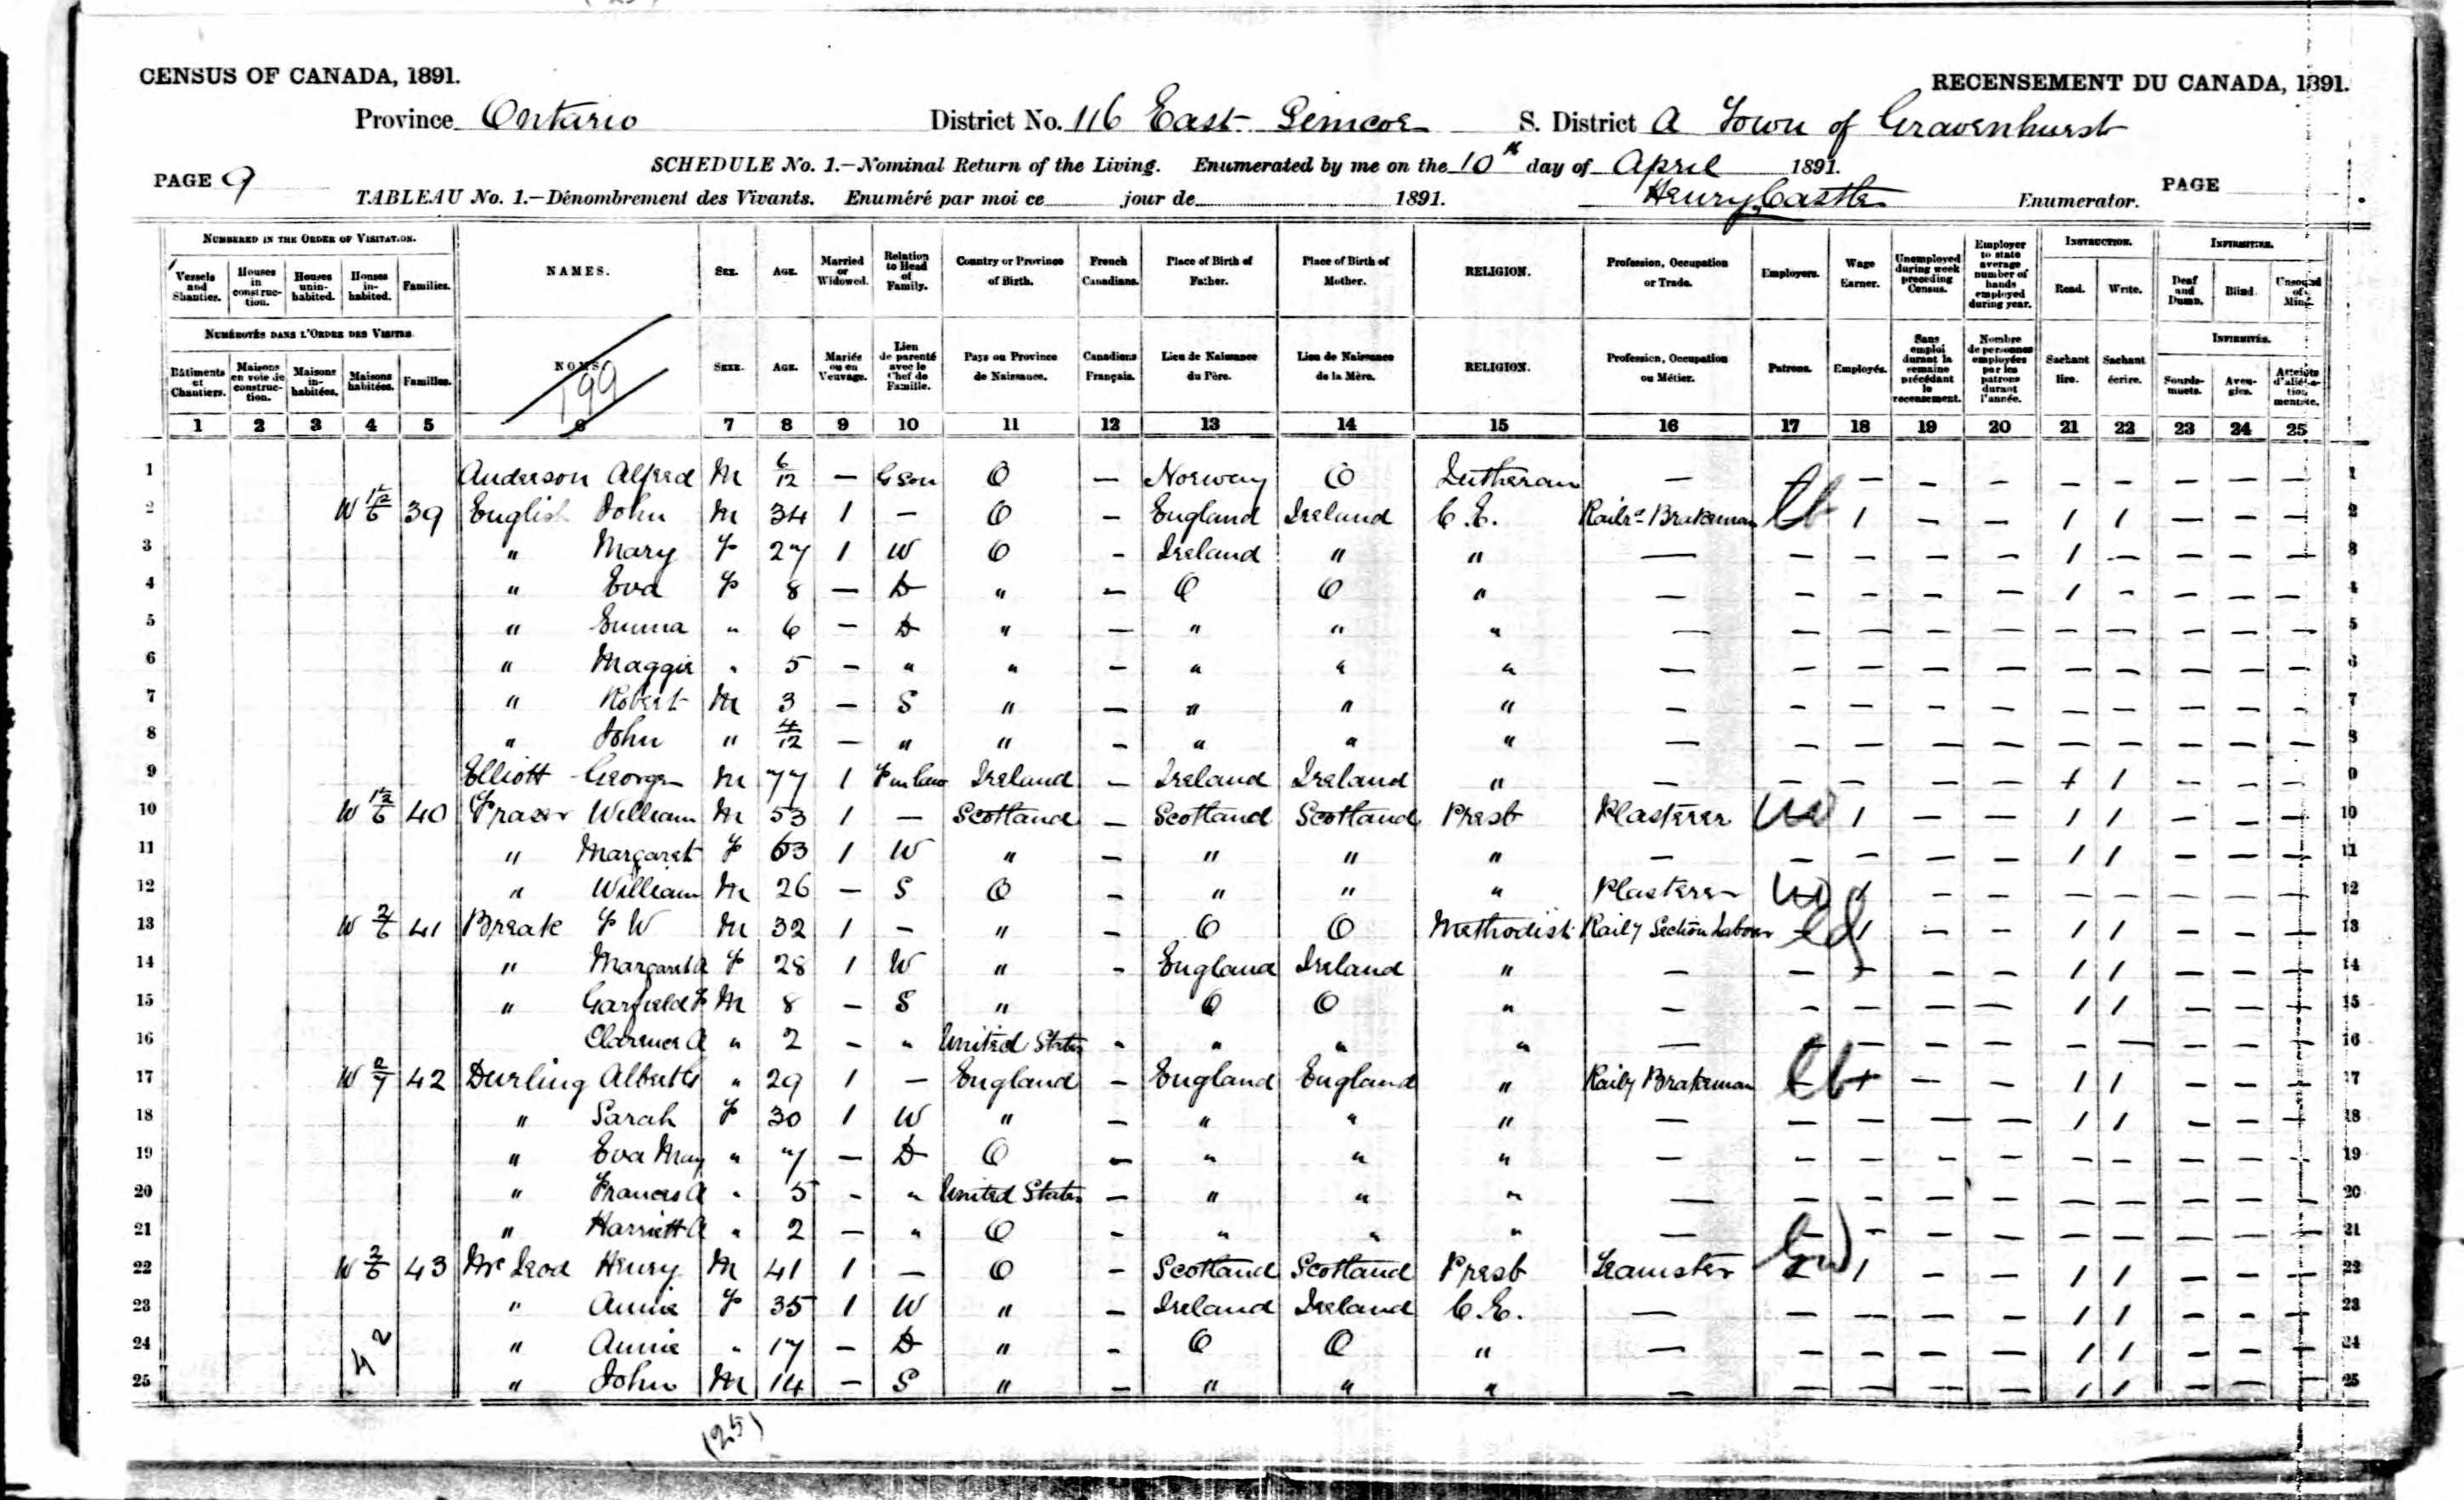 CENSUS OF CANADA, 1891. RECENSEMENT DU CANADA, 1891.
Province Ontario District No. 116 East Simcoe S. District A Town of Gravenhurst
SCHEDULE No. 1.—Nominal Return of the Living. Enumerated by me on the 10th day of April 1891.
PAGE 9 PAGE
TABLEAU No. 1.—Dénombrement des Vivants. Enuméré par moi ce jour de 1891. Henry Castle Enumerator.
NUMBERED IN THE ORDER OF VISITATION. NAMES. SEX. AGE. Married or Widowed. Relation to Head of Family. Country or Province of Birth. French Canadians. Place of Birth of Father. Place of Birth of Mother. RELIGION. Profession, Occupation or Trade. Employers. Wage Earner. Unemployed during week preceding Census. Employer to state average number of hands employed during year. INSTRUCTION. INFIRMITIES.
Vessels and Shanties. Houses in construction. Houses uninhabited. Houses inhabited. Families. Read. Write. Deaf and Dumb. Blind. Unsound of Mind.
NUMÉROTÉS DANS L'ORDRE DES VISITES NOMS. SEXE. AGE. Mariés ou en Veuvage. Lien de parenté avec le Chef de Famille. Pays ou Province de Naissance. Canadiens Français. Lieu de Naissance du Père. Lieu de Naissance de la Mère. RELIGION. Profession, Occupation ou Métier. Patrons. Employés. Sans emploi durant la semaine précédant le recensement. Nombre de personnes employées par les patrons durant l'année. Sachant lire. Sachant écrire. INFIRMITÉS.
Bâtiments et Chantiers. Maisons en voie de construction. Maisons inhabitées. Maisons habitées. Familles. Sourds-muets. Aveugles. Atteints d'aliénation mentale.
199
1 2 3 4 5 6 7 8 9 10 11 12 13 14 15 16 17 18 19 20 21 22 23 24 25
1 Anderson Alfred M 6/12 — G Son O — Norway O Lutheran — — — — — — — — — 1
2 W 1½/6 39 English John M 34 1 — O — England Ireland C.E. Railrd Brakeman 1 — — 1 1 — — — 2
3 " Mary F 27 1 W O — Ireland " " — — — — — 1 — — — — 3
4 " Eva F 8 — D " — O O " — — — — — 1 — — — — 4
5 " Emma " 6 — D " — " " " — — — — — — — — — — 5
6 " Maggie " 5 — " " — " " " — — — — — — — — — — 6
7 " Robert M 3 — S " — " " " — — — — — — — — — — 7
8 " John " 4/12 — " " — " " " — — — — — — — — — — 8
9 Elliott George M 77 1 F in law Ireland — Ireland Ireland " — — — — — 1 1 — — — 9
10 W 1½/6 40 Fraser William M 53 1 — Scotland — Scotland Scotland Presb Plasterer 1 — — 1 1 — — — 10
11 " Margaret F 63 1 W " — " " " — — — — — 1 1 — — — 11
12 " William M 26 — S O — " " " Plasterer — — — — — — — 12
13 W 2/6 41 Break F W M 32 1 — " — O O Methodist Raily Section Labour 1 — — 1 1 — — — 13
14 " Margaret A F 28 1 W " — England Ireland " — — — — — 1 1 — — — 14
15 " Garfield F M 8 — S " — O O " — — — — — 1 1 — — — 15
16 Clarence A " 2 — " United States " " " " — — — — — — — — — — 16
17 W 2/7 42 Durling Albert G " 29 1 — England — England England " Raily Brakeman — — 1 1 — — — 17
18 " Sarah F 30 1 W " — " " " — — — — — 1 1 — — — 18
19 " Eva May " 7 — D O — " " " — — — — — — — — — — 19
20 " Frances A " 5 — " United States — " " " — — — — — — — — — — 20
21 " Harriett A " 2 — " O — " " " — — — — — — — — — — 21
22 W 2/6 43 McLeod Henry M 41 1 — O — Scotland Scotland Presb Teamster 1 — — 1 1 — — — 22
23 " Annie F 35 1 W " — Ireland Ireland C.E. — — — — — 1 1 — — — 23
24 " Annie " 17 — D " — O O " — — — — — 1 1 — — — 24
25 " John M 14 — S " — " " " — — — — — 1 1 — — — 25
42
(25)